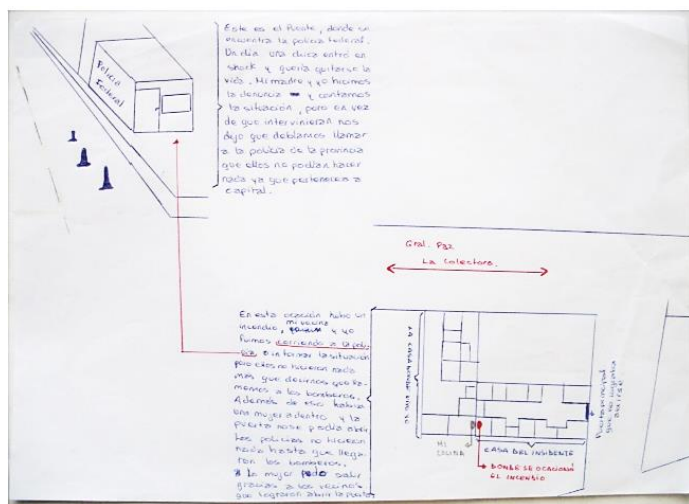 Este es el Puente, donde se
encuentra la policia federal.
Un día una chica entró en
shock y quería quitarse la
vida. Mi madre y yo hicimos
la denuncia y contamos
la situación, pero en vez
de que intervinieran nos
dijo que debíamos llamar
a la policía de la provincia
que ellos no podían hacer
nada ya que pertenecen a
capital.
Policía
Federal
Gral. Paz
La Colectora.
En esta ocación hubo un
incendio, mi vecina y yo
fuimos corriendo a la poli-
cia a informar la situación
pero ellos no hicieron nada
más que decirnos que lla-
memos a los bomberos.
Además de ello había
una mujer adentro y la
puerta no se podía abrir.
Los policias no hicieron
nada hasta que llega-
ron los bomberos.
* La mujer pudo salir
gracias a los vecinos
que lograron abrir la puerta
LA CASA DONDE VIVO YO
Puerta principal
que no lograba
abrirse
MI
COCINA
CASA DEL INSIDENTE
DONDE SE OCACIONÓ
EL INCENDIO